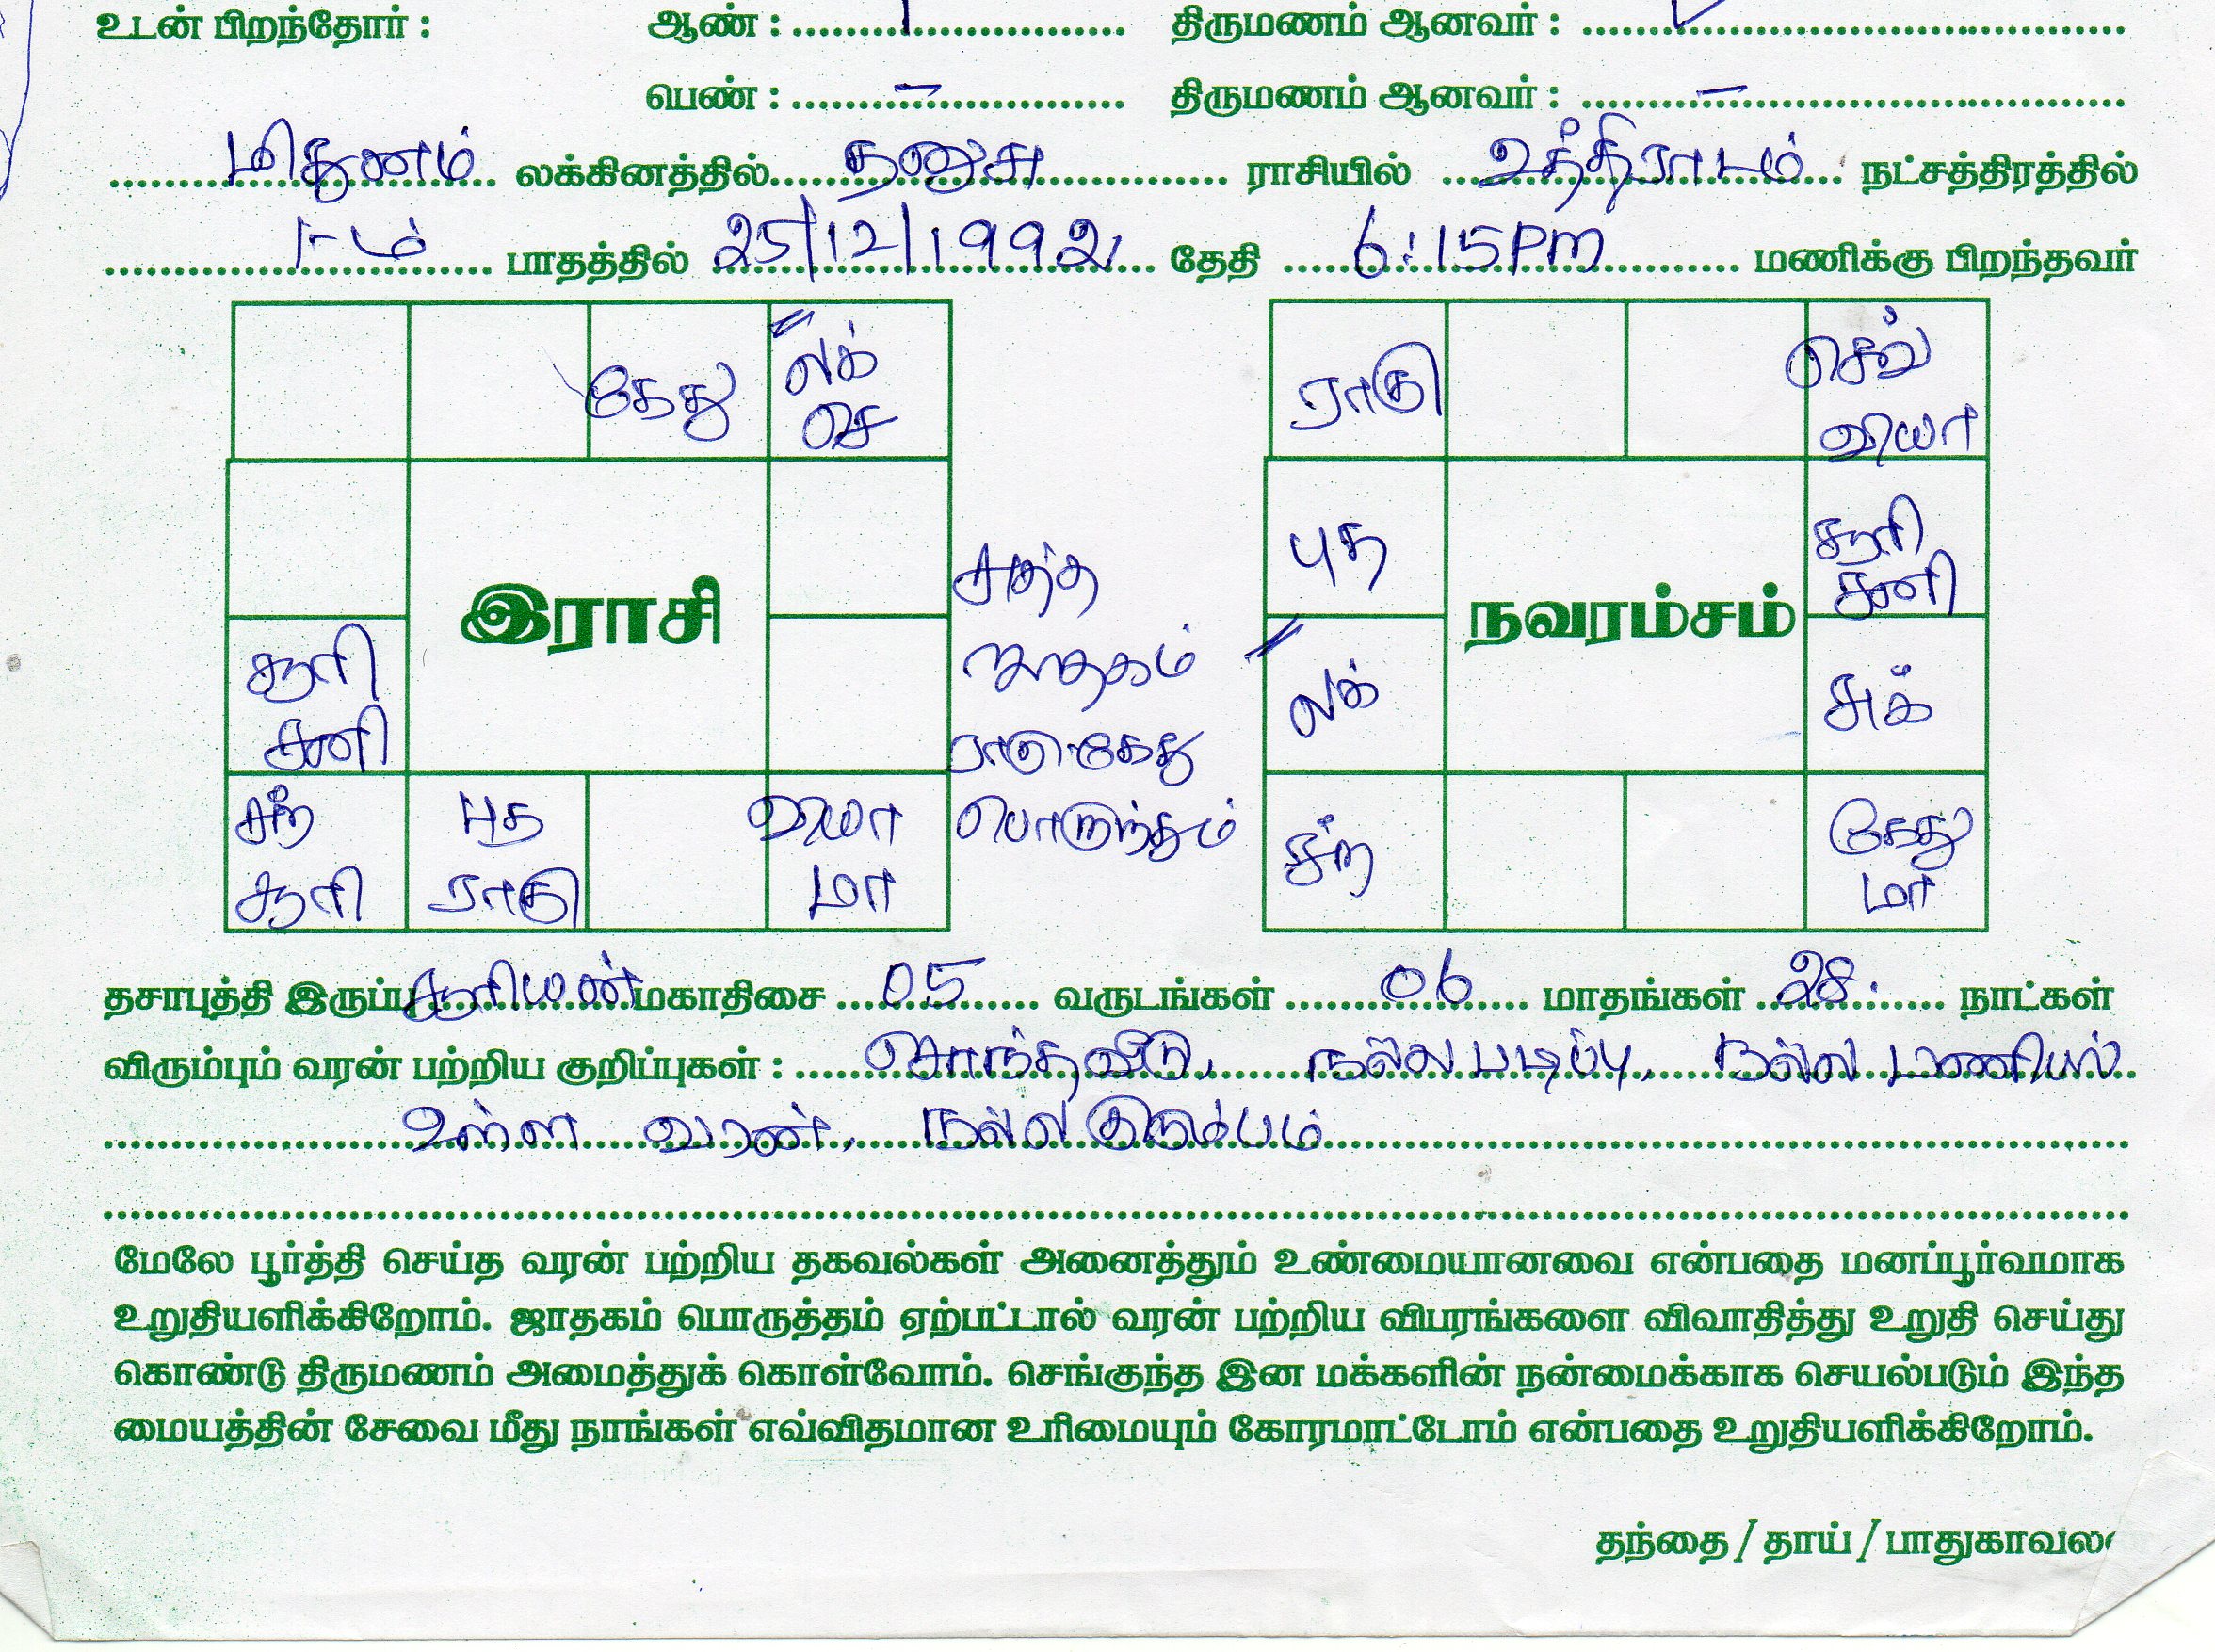 உடன் பிறந்தோர் : ஆண் : 1 திருமணம் ஆனவர் :
பெண் : – திருமணம் ஆனவர் : –
மிதுனம் லக்கினத்தில் தனுசு ராசியில் உத்திராடம் நட்சத்திரத்தில்
1-ம் பாதத்தில் 25/12/1992 தேதி 6:15PM மணிக்கு பிறந்தவர்
கேது லக் செ
ராகு செவ் வியா
இராசி
புத நவரம்சம் சூரி சனி
சுத்த
ஜாதகம்
ராகு கேது
பொருந்தும்
சூரி சனி
லக் சுக்
சந் சூரி புத ராகு வியா மா
சந் கேது மா
தசாபுத்தி இருப்பு சூரியன் மகாதிசை 05 வருடங்கள் 06 மாதங்கள் 28 நாட்கள்
விரும்பும் வரன் பற்றிய குறிப்புகள் : சொந்தவீடு, நல்ல படிப்பு, நல்ல பணியில்
உள்ள வரண், நல்ல குடும்பம்
மேலே பூர்த்தி செய்த வரன் பற்றிய தகவல்கள் அனைத்தும் உண்மையானவை என்பதை மனப்பூர்வமாக
உறுதியளிக்கிறோம். ஜாதகம் பொருத்தம் ஏற்பட்டால் வரன் பற்றிய விபரங்களை விவாதித்து உறுதி செய்து
கொண்டு திருமணம் அமைத்துக் கொள்வோம். செங்குந்த இன மக்களின் நன்மைக்காக செயல்படும் இந்த
மையத்தின் சேவை மீது நாங்கள் எவ்விதமான உரிமையும் கோரமாட்டோம் என்பதை உறுதியளிக்கிறோம்.
தந்தை / தாய் /